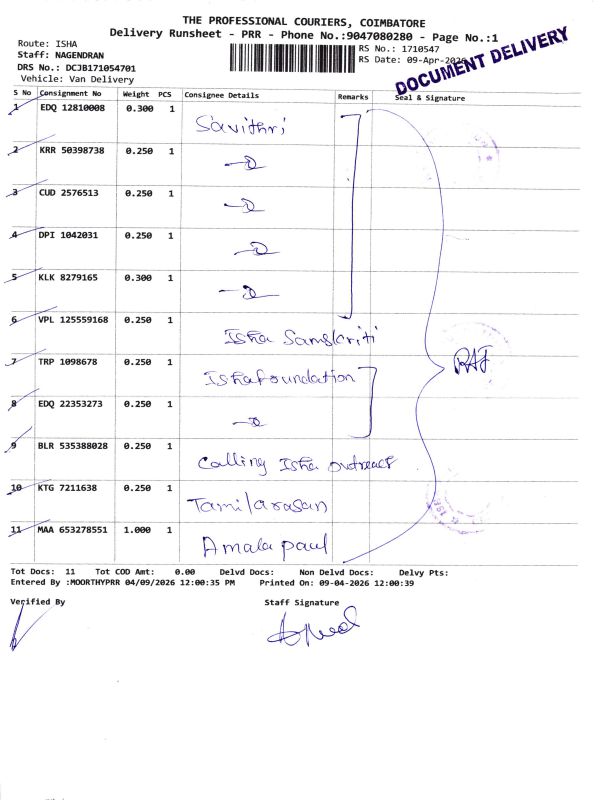 THE PROFESSIONAL COURIERS, COIMBATORE
Delivery Runsheet - PRR - Phone No.:9047080280 - Page No.:1
Route: ISHA
Staff: NAGENDRAN
DRS No.: DCJB171054701
Vehicle: Van Delivery
RS No.: 1710547
RS Date: 09-Apr-2026
DOCUMENT DELIVERY
S No Consignment No Weight PCS Consignee Details Remarks Seal & Signature
1 EDQ 12810008 0.300 1 Savithri
2 KRR 50398738 0.250 1
3 CUD 2576513 0.250 1
4 DPI 1042031 0.250 1
5 KLK 8279165 0.300 1
6 VPL 125559168 0.250 1 Isha Samskriti
7 TRP 1098678 0.250 1 Isha foundation
8 EDQ 22353273 0.250 1
9 BLR 535388028 0.250 1 Calling Isha outreach
10 KTG 7211638 0.250 1 Tamilarasan
11 MAA 653278551 1.000 1 Amala paul
RAJ
Tot Docs: 11 Tot COD Amt: 0.00 Delvd Docs: Non Delvd Docs: Delvy Pts:
Entered By :MOORTHYPRR 04/09/2026 12:00:35 PM Printed On: 09-04-2026 12:00:39
Verified By Staff Signature